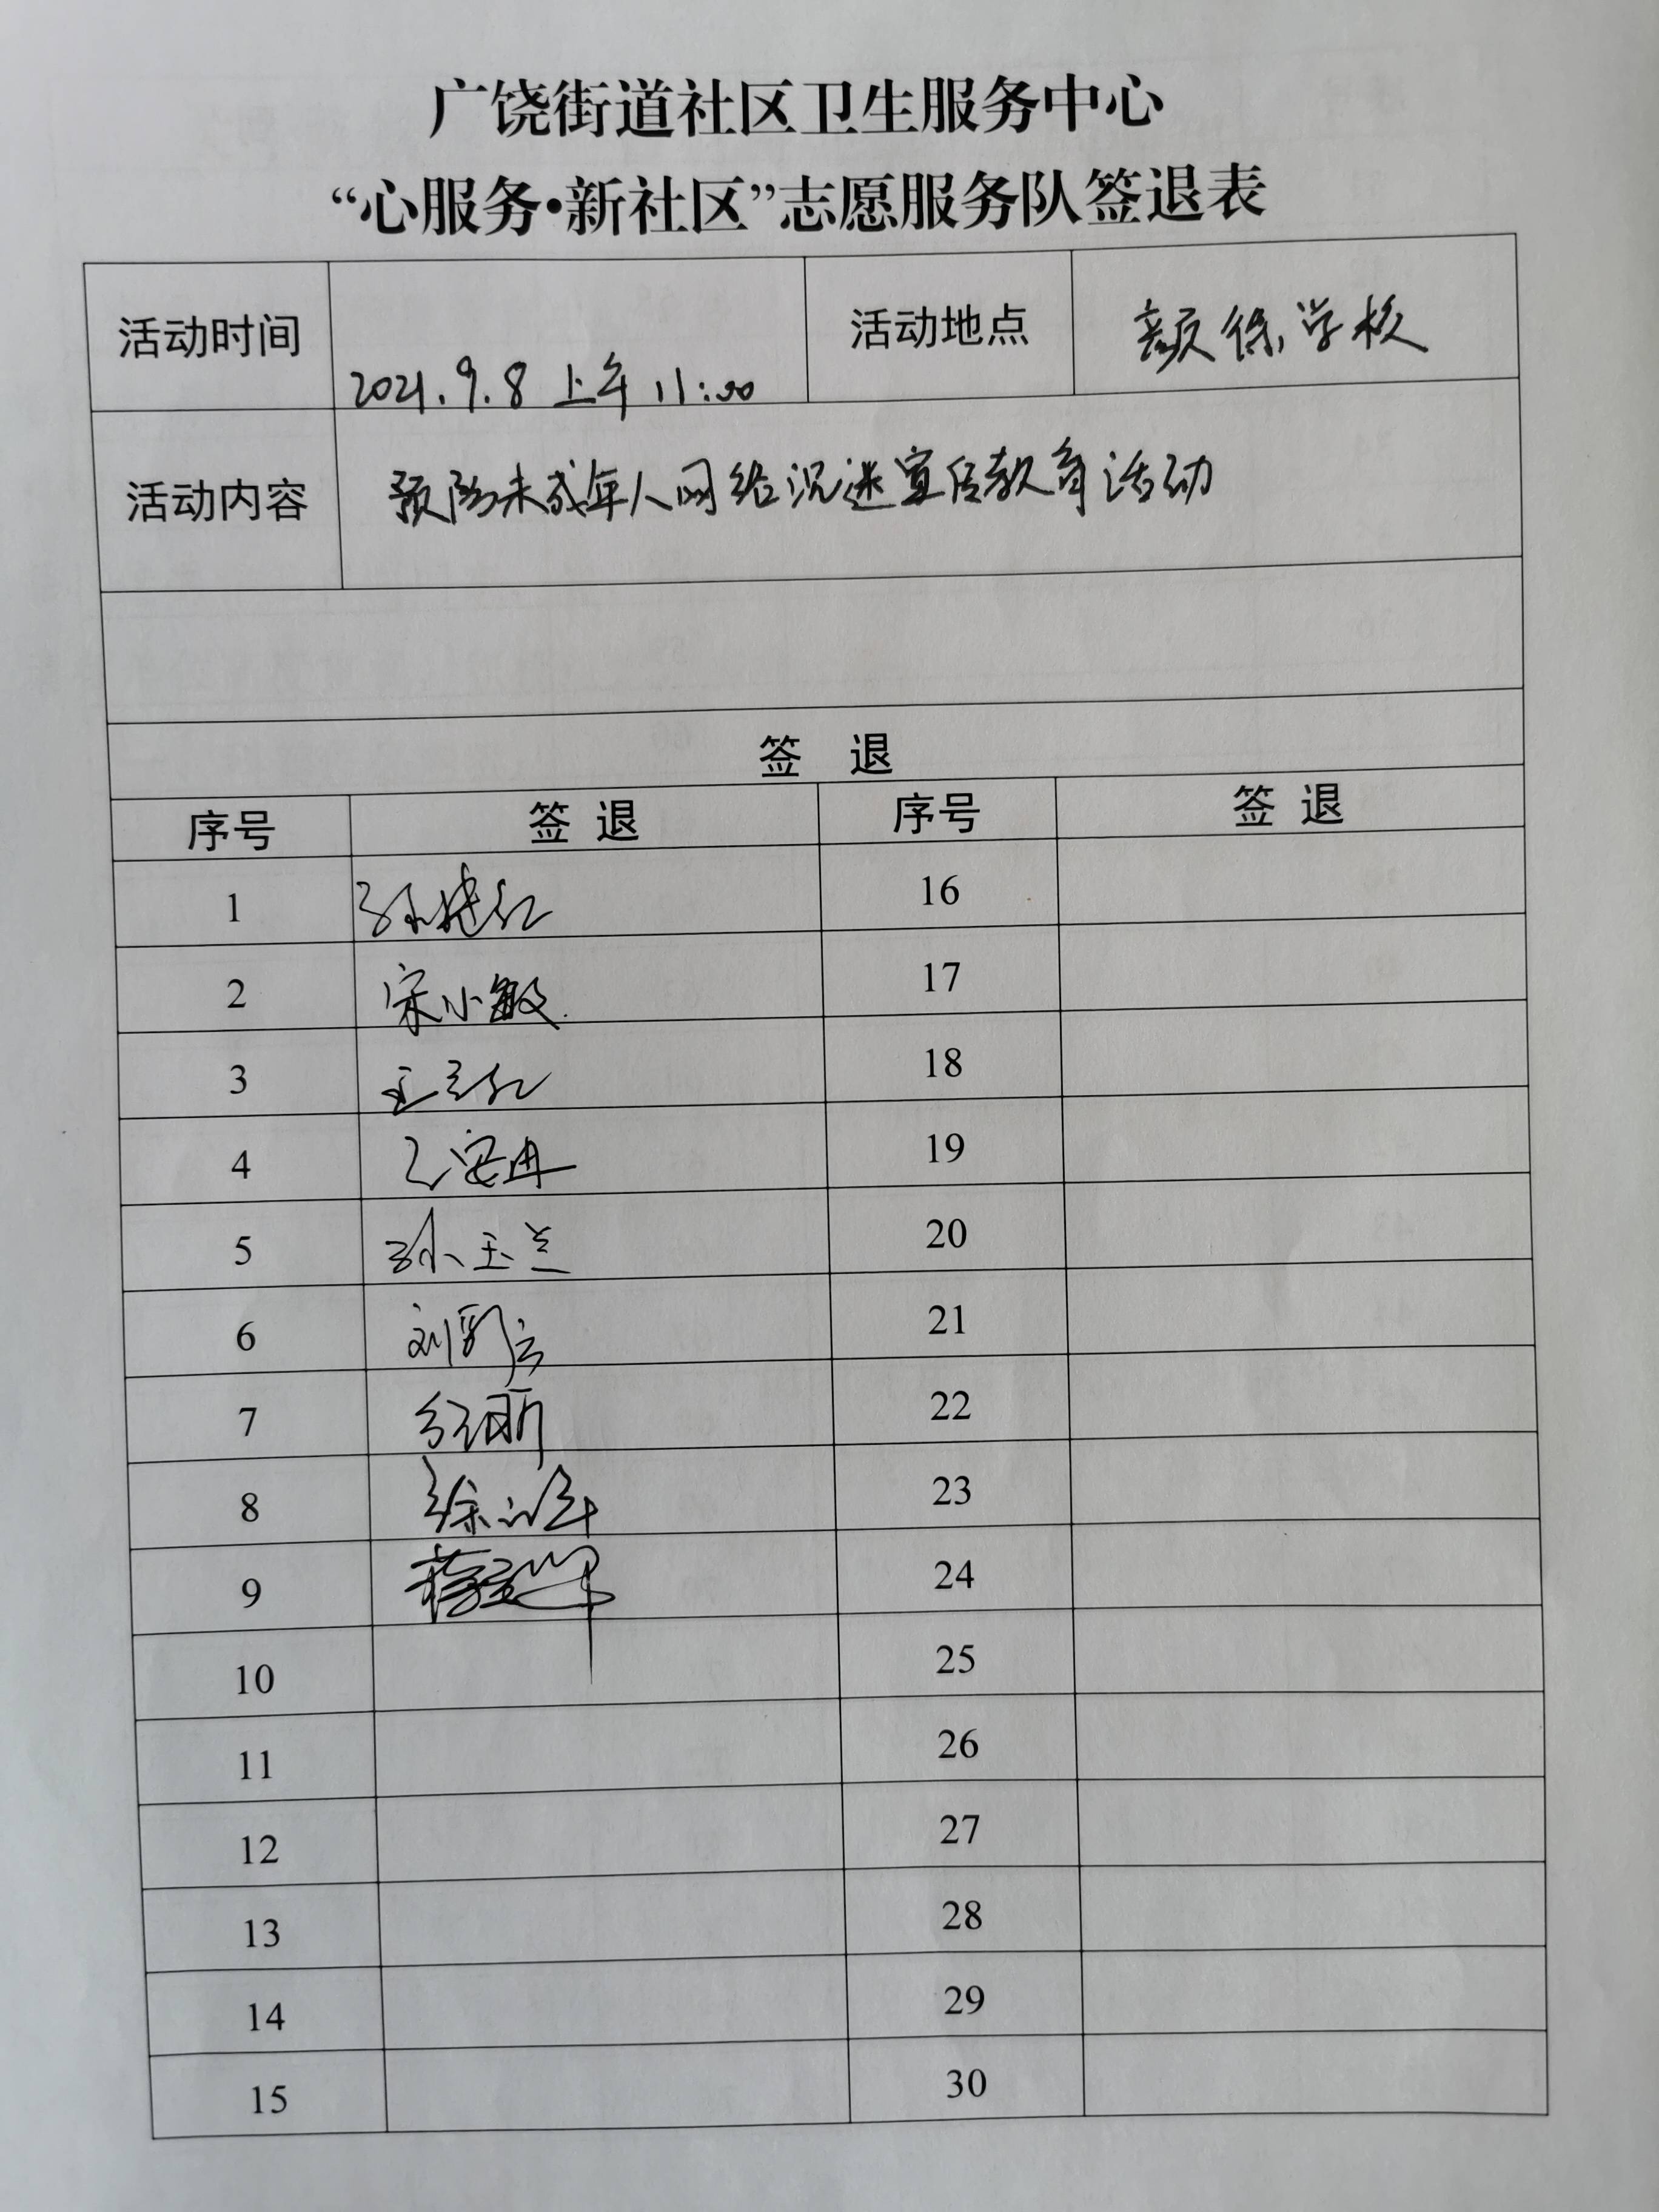 广饶街道社区卫生服务中心
“心服务•新社区”志愿服务队签退表
活动时间 2021.9.8 上午 11:00 活动地点 颜徐学校
活动内容 预防未成年人网络沉迷宣传教育活动
签 退
序号 签 退 序号 签 退
1 孙建红 16
2 宋小敏 17
3 18
4 19
5 孙玉兰 20
6 21
7 22
8 23
9 24
10 25
11 26
12 27
13 28
14 29
15 30